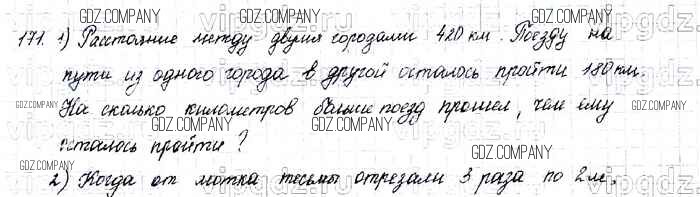 GDZ.COMPANY GDZ.COMPANY GDZ.COMPANY
171. 1) Расстояние между двумя городами 420 км. Поезду на
пути из одного города в другой осталось пройти 180 км.
На сколько километров больше поезд прошел, чем ему
GDZ.COMPANY GDZ.COMPANY
осталось пройти?
GDZ.COMPANY GDZ.COMPANY
2) Когда от мотка тесьмы отрезали 3 раза по 2 м,